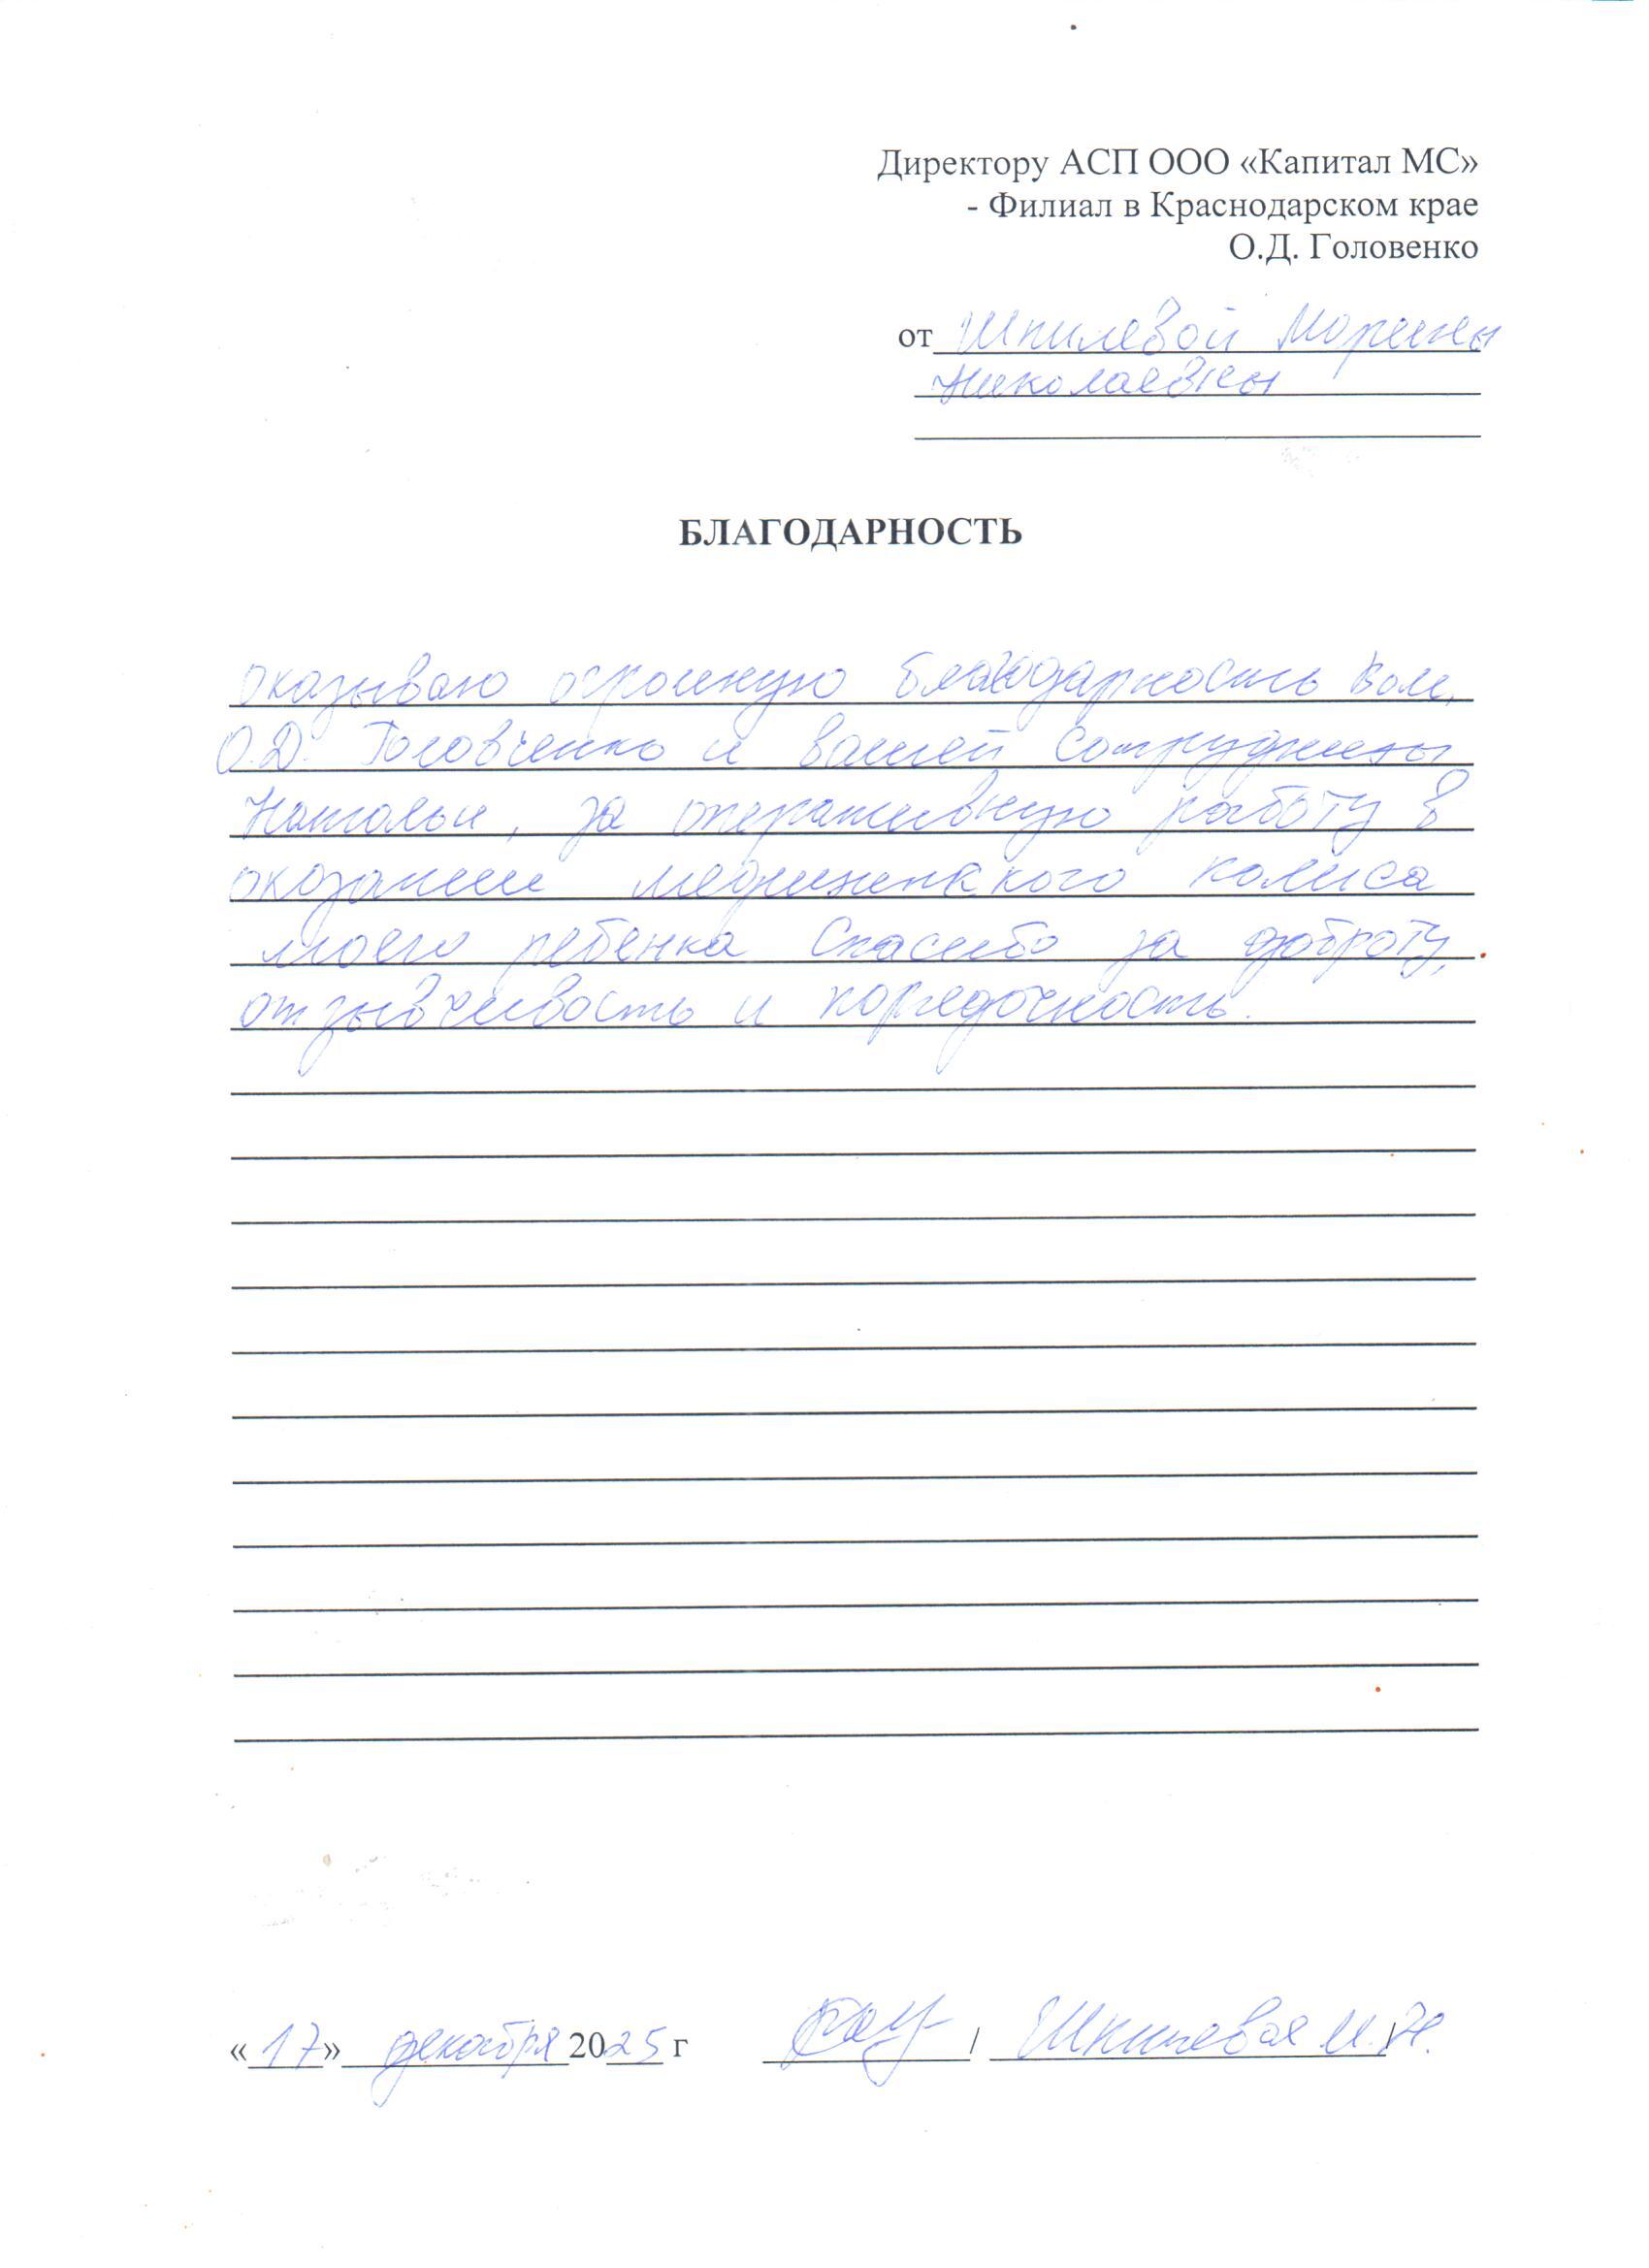 Директору АСП ООО «Капитал МС»
- Филиал в Краснодарском крае
О.Д. Головенко
от Шпилевой Марины
Николаевны
БЛАГОДАРНОСТЬ
оказываю огромную благодарность Вам,
О.Д. Головченко и вашей сотрудницы
Натальи, за оперативную работу в
оказании медицинкского полиса
моего ребенка Спасибо за доброту,
отзывчивость и порядочность.
«17» декабря 2025 г / Шпилевая М.Н.